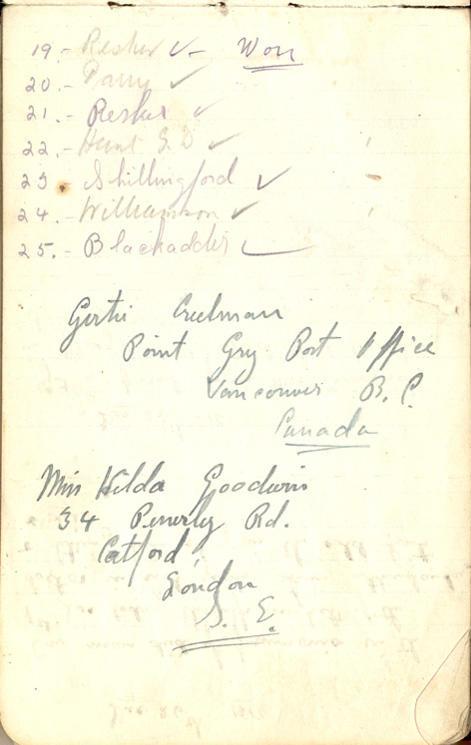 19.- Resker ✓- Won
20.- Parry ✓
21.- Resker ✓
22.- Hunt G.D ✓
23 - Shillingford ✓
24.- Williamson ✓
25.- Blackadder ✓
Gertie Creelman
Point Grey Post Office
Vancouver B.C.
Canada
Miss Hilda Goodwin
34 Penerley Rd.
Catford
London
S.E.